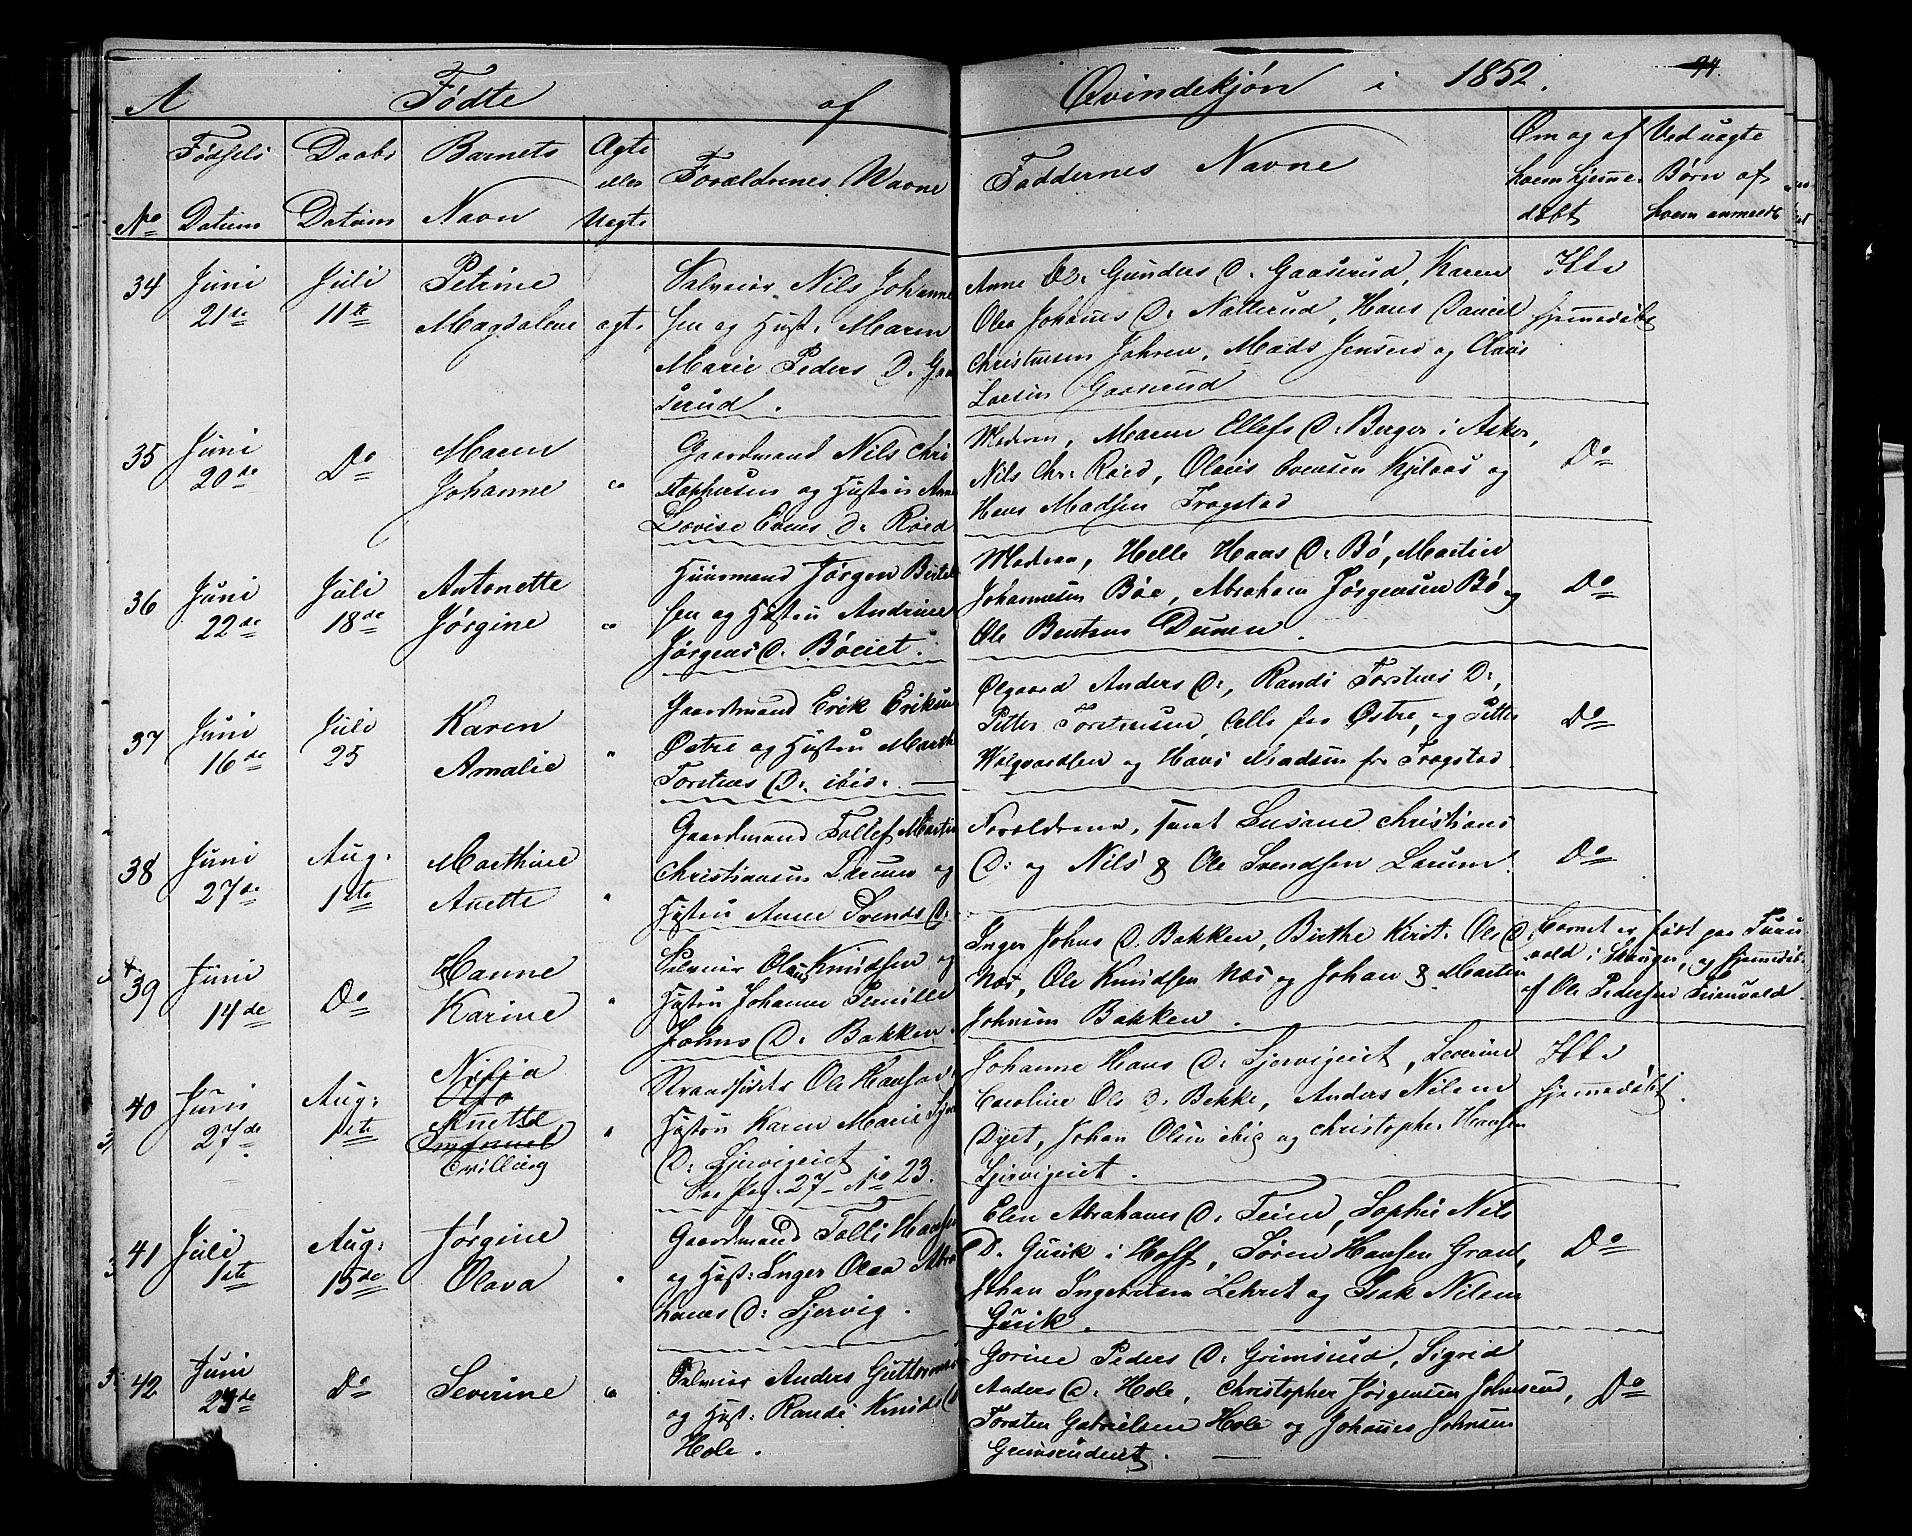 A Fødte af Qvindekjøn i 1852. 94
No
Fødsels Datum
Daabs Datum
Barnets Navn
Ægte eller Uægte
Forældrenes Navne
Faddernes Navne
Om og af hvem hjemmedøbt
Ved uægte Børn af hvem anmeldt
34 Juni 21de
Juli 11te
Petrine Magdalene
ægte
Selveier Nils Johanne
sen og Hust: Maren
Marie Peders D. Gaa
serud.
Anne O: Gunders D. Gaaserud, Karen
Olea Johannes D. Natterud, Hans Daniel
Christensen Fahren, Mads Jensen og Claus
Larsen Gaaserud
Ikke hjemmedøbt
35 Juni 20de
Do
Maren Johanne
"
Gaardmand Nils Chri
stophersen og Hustru Anne
Lovise Evens D. Røed
Moderen, Maren Ellefs D. Berger i Asker,
Nils Chr: Røed, Olaus Evensen Kjilaas og
Hans Madsen Fragstad
Do
36 Juni 22de
Juli 18de
Antonette Jørgine
"
Huusmand Jørgen Bertel
sen og Hustru Andrine
Jørgens D. Bøeiet.
Moderen, Helle Hans D. Bø, Martin
Johannesen Bøe, Abraham Jørgensen Bø og
Ole Bentsen Dunen.
Do
37 Juni 16de
Juli 25
Karen Amalie
"
Gaardmand Erik Eriksen
Østre og Hustru Marthe
Torstens D. ibid.
Olgaard Anders D:, Randi Torstens D:,
Petter Torstensen, Alle fra Østre, og Petter
Halgvardsen og Hans Madsen fra Fragstad.
Do
38 Juni 27de
Aug: 1ste
Marthine Anette
"
Gaardmand Tollef Martin
Christiansen Lærum og
Hustru Anne Svends D:
Forældrene, samt Susane Christians
D: og Nils & Ole Svendsen Lærum.
Do
39 Juni 14de
Do
Hanne Karine
"
Selveier Olaus Knudsen og
Hustru Johanne Pernille
Johns D. Bakken.
Inger Johns D. Bakken, Birthe Kirst: Ols D.
Næs, Ole Knudsen Næs og Johan & Martin
Johnsen Bakken.
Barnet er født paa Furu
vald i Skouger, og hjemmedøbt
af Ole Pedersen Furuvald.
40 Juni 27de
Aug: 1ste
Nilia
Anette
Tvilling
"
Strandsidder Ole Hansen
Hustru Karen Marie
D: Ljervigeiet
See Pag. 27 - No 23.
Johanne Hans D. Ljervigeiet, Severine
Caroline Ols D. Bekke, Anders Nilsen
Dyet, Johan Olsen ibid og Christopher Hansen
Ljervigeiet.
Ikke hjemmedøbt.
41 Juli 1ste
Aug: 15de
Jørgine Olava
"
Gaardmand Tolli Hansen
og Hust: Inger Olea Abra
hams D: Ljervig.
Elen Abrahams D. Teine, Sophie Nils
D. Gusik i Hoff, Søren Hansen Grand,
Johan Ingebretsen Lehret og Isak Nilsen
Gusik.
Do
42 Juni 23de
Do
Severine
"
Selveier Anders Guttormsen
og Hust: Randi Knuds D
Hole.
Gorine Peders D. Grimsrud, Sigrid
Anders D. Hole, Christopher Jørgensen Johnsrud,
Torsten Gabrielsen Hole og Johannes Johnsen
Grimsrudeiet.
Do